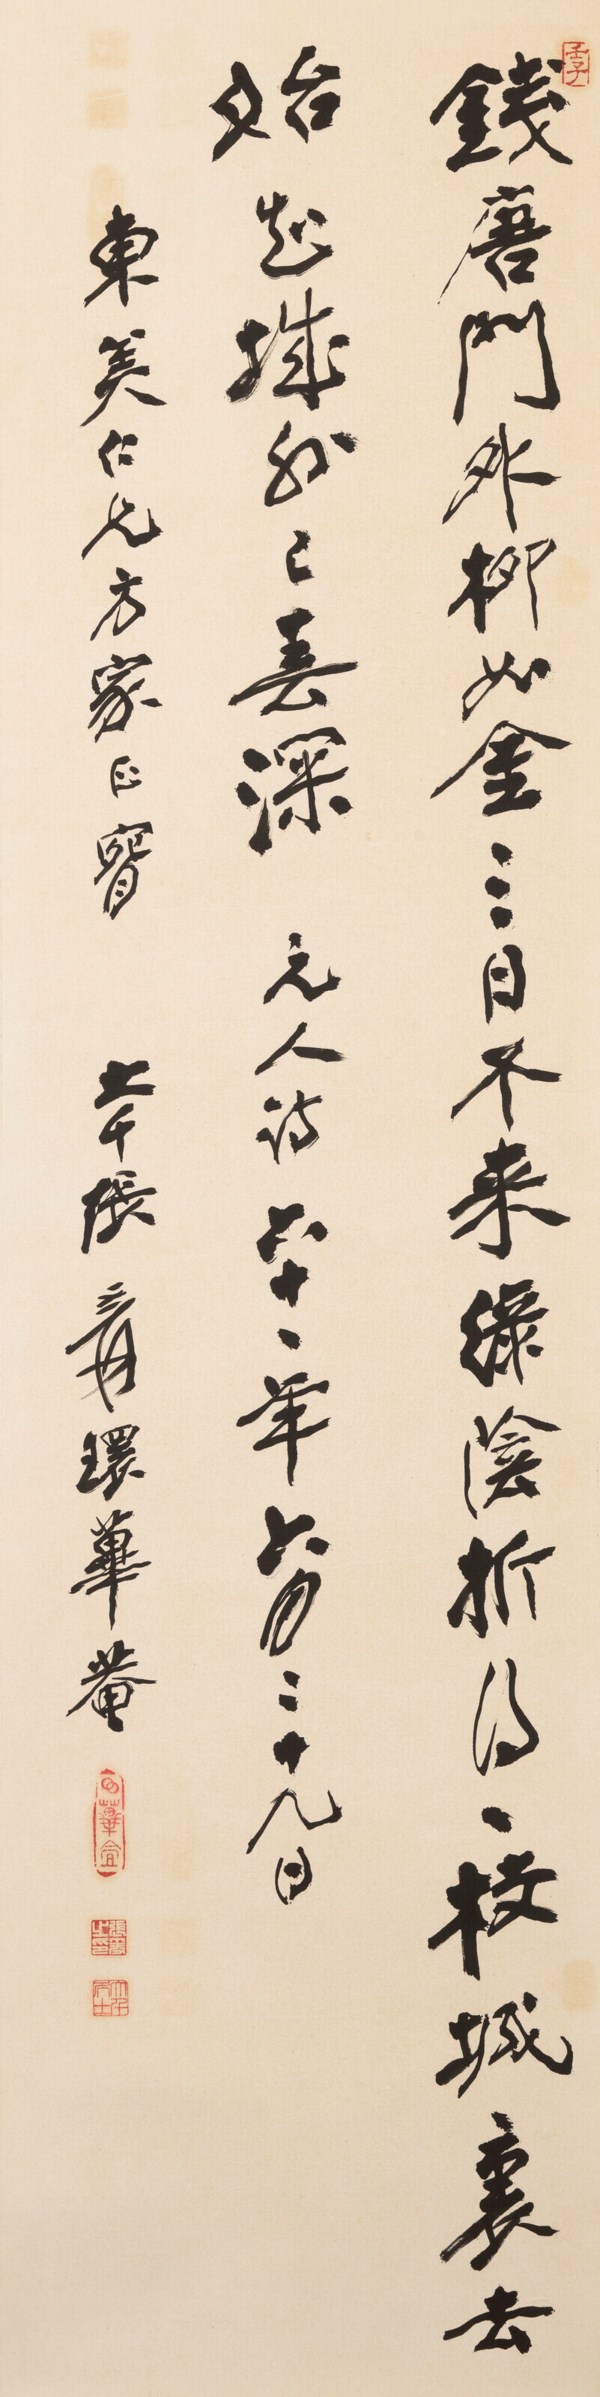 壬子
錢唐門外柳如金三日不來綠陰折得一枝城裏去
始知城外已春深 元人詩 六十一年六月二十九日
東美仁兄方家正 大千張爰環蓽菴
張爰之印
大千居士